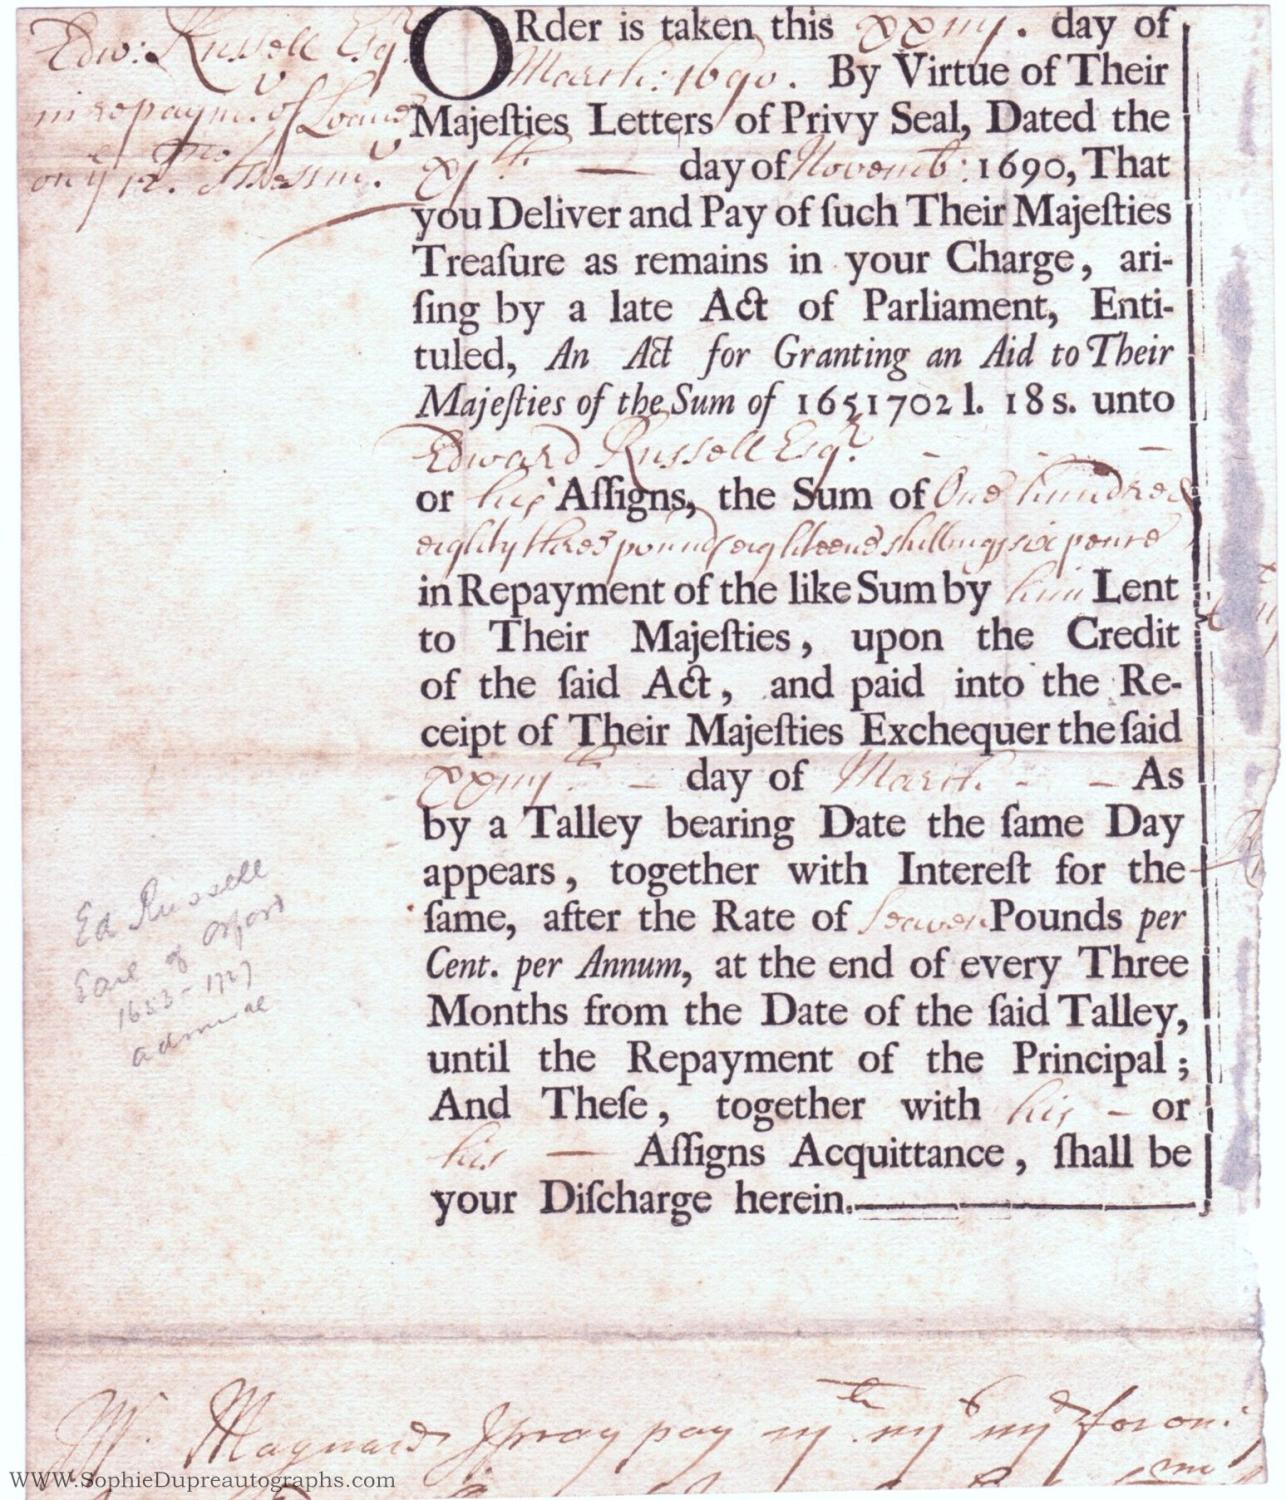 Edw: Russell Esqr.
in repaym. of Loane
on ye 12. Mo Assessmt.
ORder is taken this xxiiij. day of
March: 1690. By Virtue of Their
Majeſties Letters of Privy Seal, Dated the
xjth — day of Novemb: 1690, That
you Deliver and Pay of ſuch Their Majeſties
Treaſure as remains in your Charge, ari-
ſing by a late Act of Parliament, Enti-
tuled, An Act for Granting an Aid to Their
Majeſties of the Sum of 1651702 l. 18 s. unto
Edward Russell Esqr. — — —
or his Aſſigns, the Sum of One hundred
eighty three pounds eighteene shillings six pence
in Repayment of the like Sum by him Lent
to Their Majeſties, upon the Credit
of the ſaid Act, and paid into the Re-
ceipt of Their Majeſties Exchequer the ſaid
xxiiijth — day of March - — As
by a Talley bearing Date the ſame Day
appears, together with Intereſt for the
ſame, after the Rate of seaven Pounds per
Cent. per Annum, at the end of every Three
Months from the Date of the ſaid Talley,
until the Repayment of the Principal;
And Theſe, together with his — or
his — Aſſigns Acquittance, ſhall be
your Diſcharge herein.
Ed Russell
Earl of Orford
1653-1727
admiral
Mr. Maynard I pray pay for
WWW.SophieDupreautographs.com